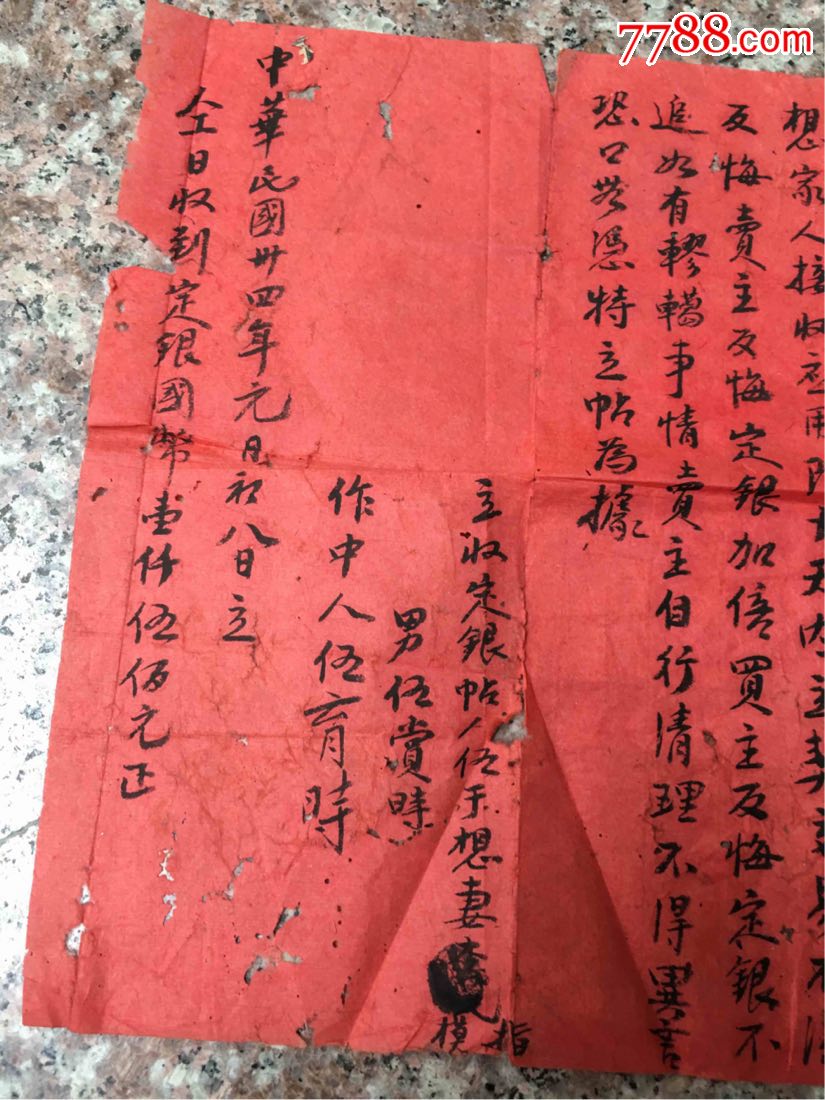 7788.com
想家人接收應用限十天內主
反悔賣主反悔定銀加倍買主反悔定銀不
追如有轇轕事情賣主自行清理不得異言
恐口無憑特立帖為據
立收定銀帖人伍于想妻
指模
男伍賞時
作中人伍育時
中華民國卅四年元月初八日立
仝日收到定銀國幣壹仟伍佰元正